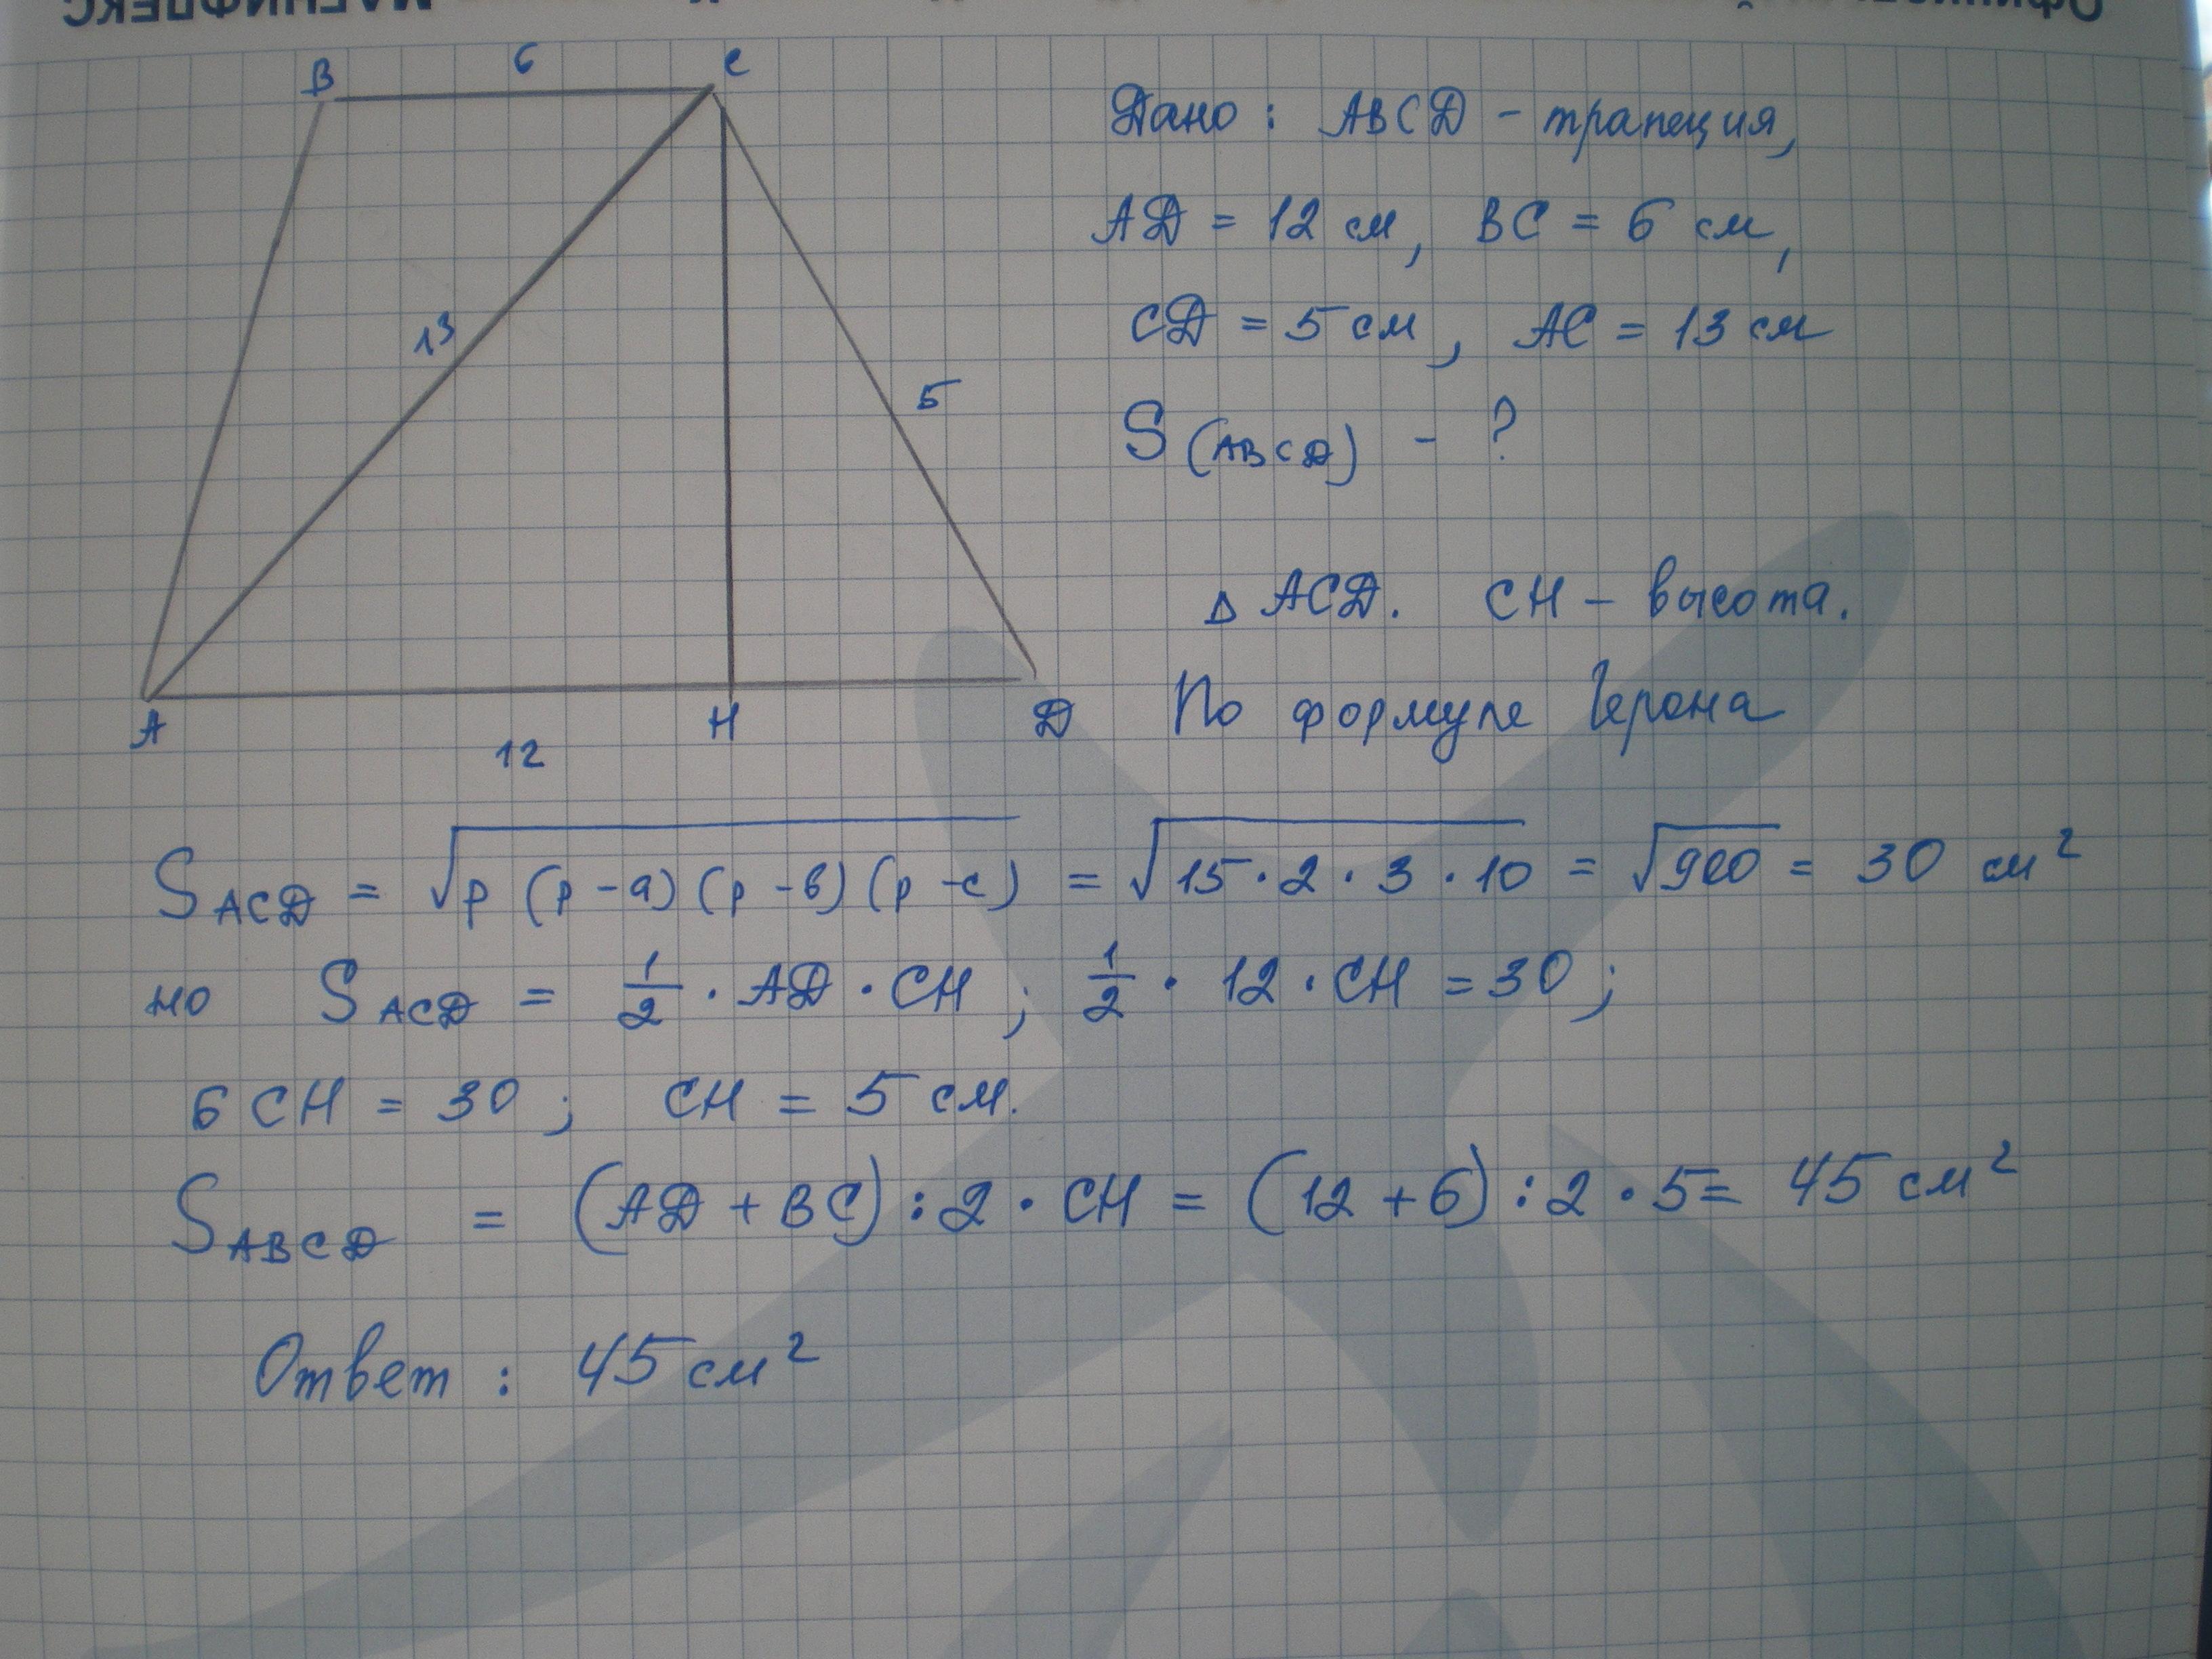 B 6 C
Дано: ABCD - трапеция,
AD = 12 см, BC = 6 см,
13
CD = 5 см, AC = 13 см
5
S (ABCD) - ?
△ ACD. CH - высота.
A H D
12
По формуле Герона
S ACD = √p (p - a) (p - в) (p - c) = √15 · 2 · 3 · 10 = √900 = 30 см²
но S ACD = 1/2 · AD · CH ; 1/2 · 12 · CH = 30 ;
6 CH = 30 ; CH = 5 см.
S ABCD = (AD + BC) : 2 · CH = (12 + 6) : 2 · 5 = 45 см²
Ответ : 45 см²